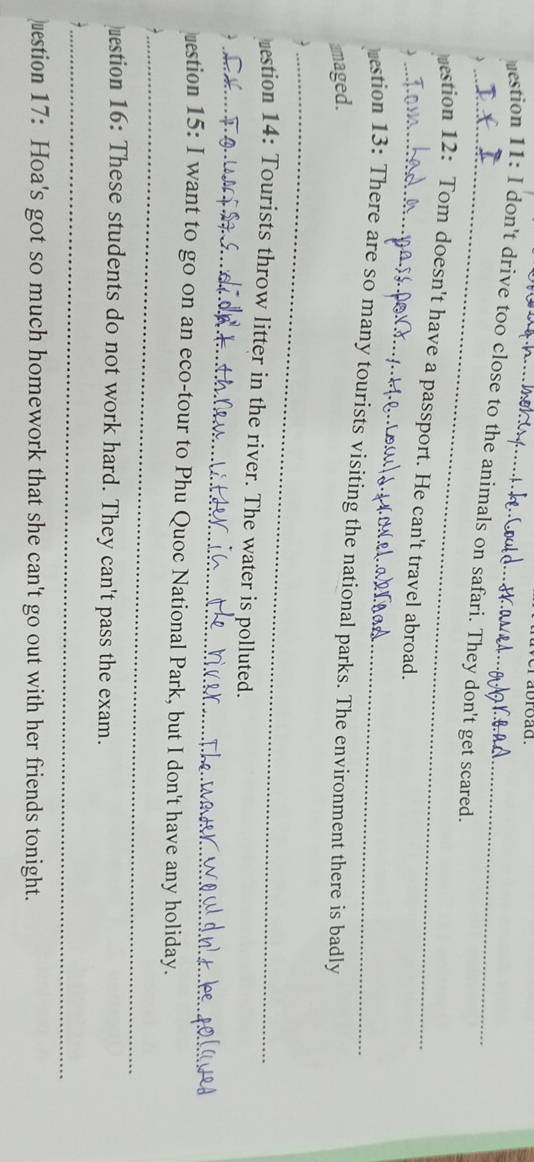 money, he could travel abroad
uestion 11: I don't drive too close to the animals on safari. They don't get scared.
If I
uestion 12: Tom doesn't have a passport. He can't travel abroad.
Tom had a passport, He would travel abroad
uestion 13: There are so many tourists visiting the national parks. The environment there is badly
maged.
uestion 14: Tourists throw litter in the river. The water is polluted.
If Tourists didn't threw litter in the river. The water wouldn't be polluted
uestion 15: I want to go on an eco-tour to Phu Quoc National Park, but I don't have any holiday.
uestion 16: These students do not work hard. They can't pass the exam.
uestion 17: Hoa's got so much homework that she can't go out with her friends tonight.